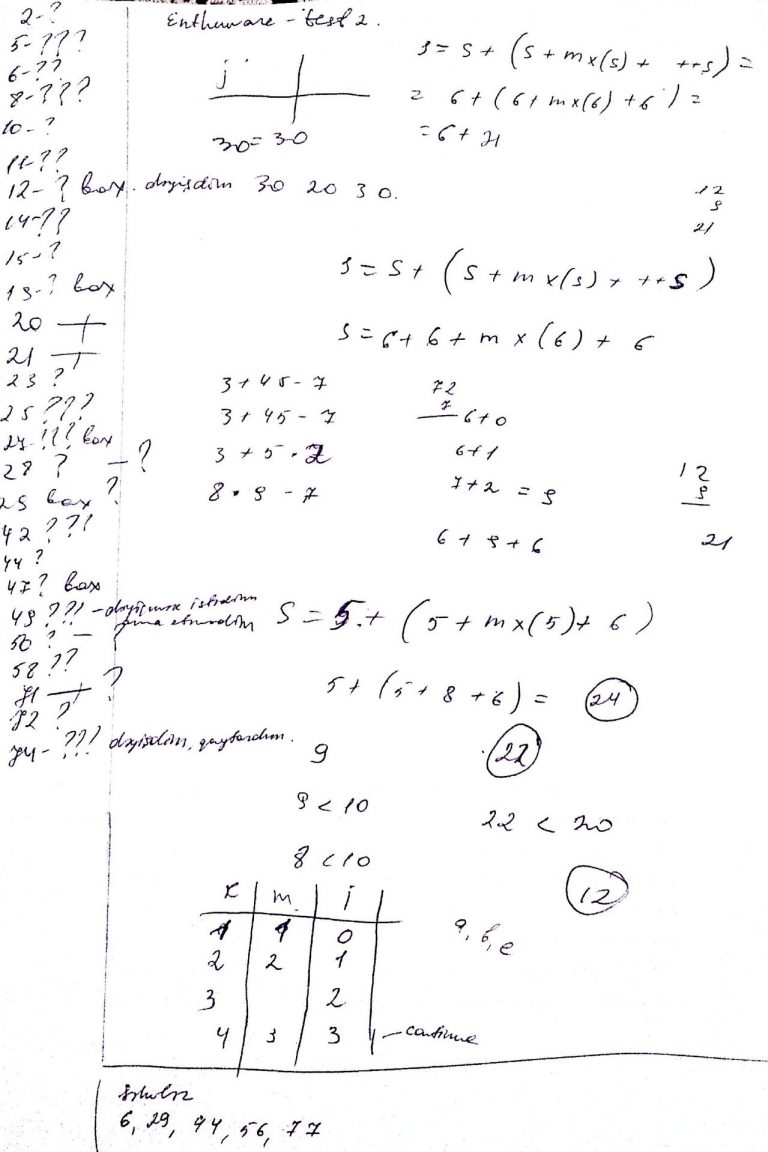 Enthuware - test 2.
2-?
5-???
6-??
8-???
10-?
11-??
12-? box. dəyişdim 30 20 30.
14-??
15-?
19-? box
20 +
21 +
23 ?
25 ???
27-!!? box
28 ? - ?
29 box ?
42 ??!
44 ?
47? box
49 ??!
50 ? -
58 ??
71 + ?
72 ?
74 - ???! dəyişdim, qaytardım.
j
30=30
s = s + (s + mx(s) + ++s) =
= 6 + (6 + mx(6) + 6) =
= 6 + 21
12
9
21
s = s + (s + mx(s) + ++s)
s = 6 + 6 + mx(6) + 6
3 + 45 - 7
3 + 45 - 7
3 + 5 * 7
8 * 9 - 7
72
7
6+0
6+1
7+2 = 9
6 + 9 + 6
12
9
21
s = 5 + (5 + mx(5) + 6)
5 + (5 + 8 + 6) = 24
9
22
9 < 10
22 < 20
8 < 10
12
k m j
1 1 0
2 2 1
3 2
4 3 3 - continue
a, b, e
6, 29, 44, 56, 77